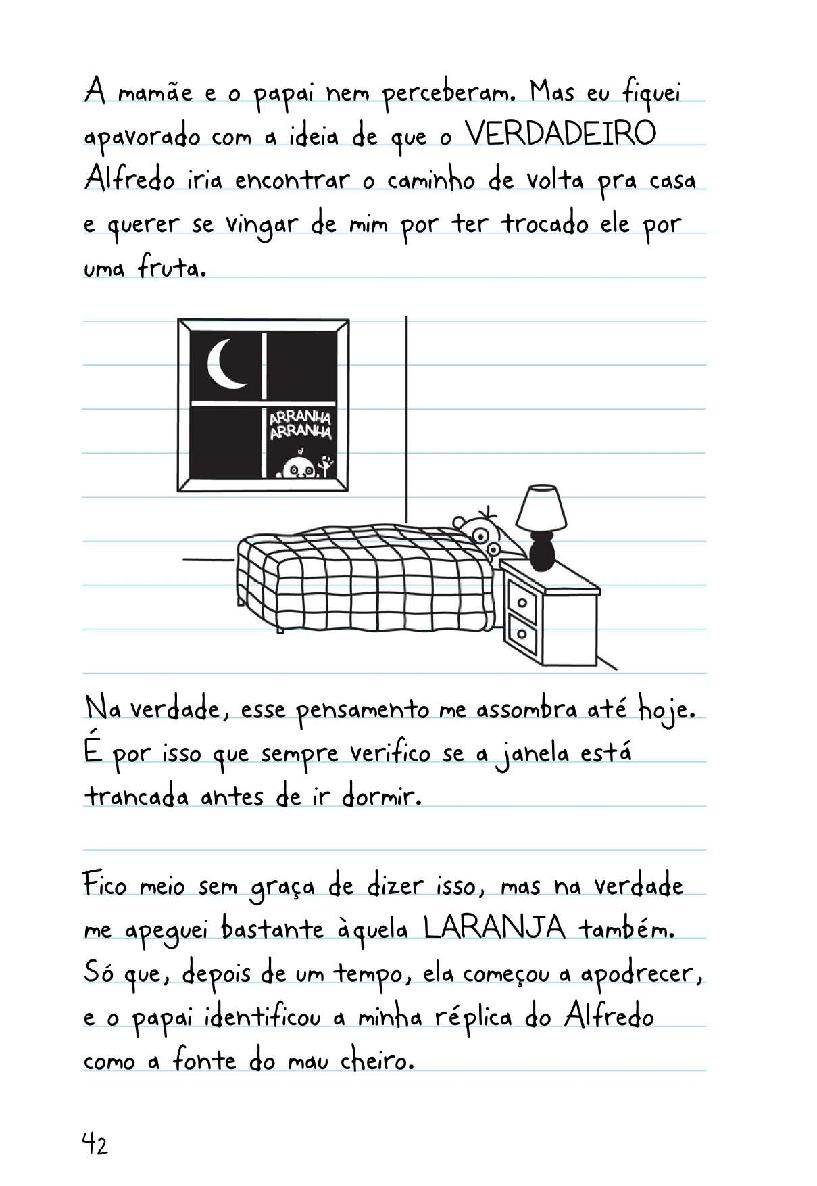 A mamãe e o papai nem perceberam. Mas eu fiquei
apavorado com a ideia de que o VERDADEIRO
Alfredo iria encontrar o caminho de volta pra casa
e querer se vingar de mim por ter trocado ele por
uma fruta.
ARRANHA
ARRANHA
Na verdade, esse pensamento me assombra até hoje.
É por isso que sempre verifico se a janela está
trancada antes de ir dormir.
Fico meio sem graça de dizer isso, mas na verdade
me apeguei bastante àquela LARANJA também.
Só que, depois de um tempo, ela começou a apodrecer,
e o papai identificou a minha réplica do Alfredo
como a fonte do mau cheiro.
42